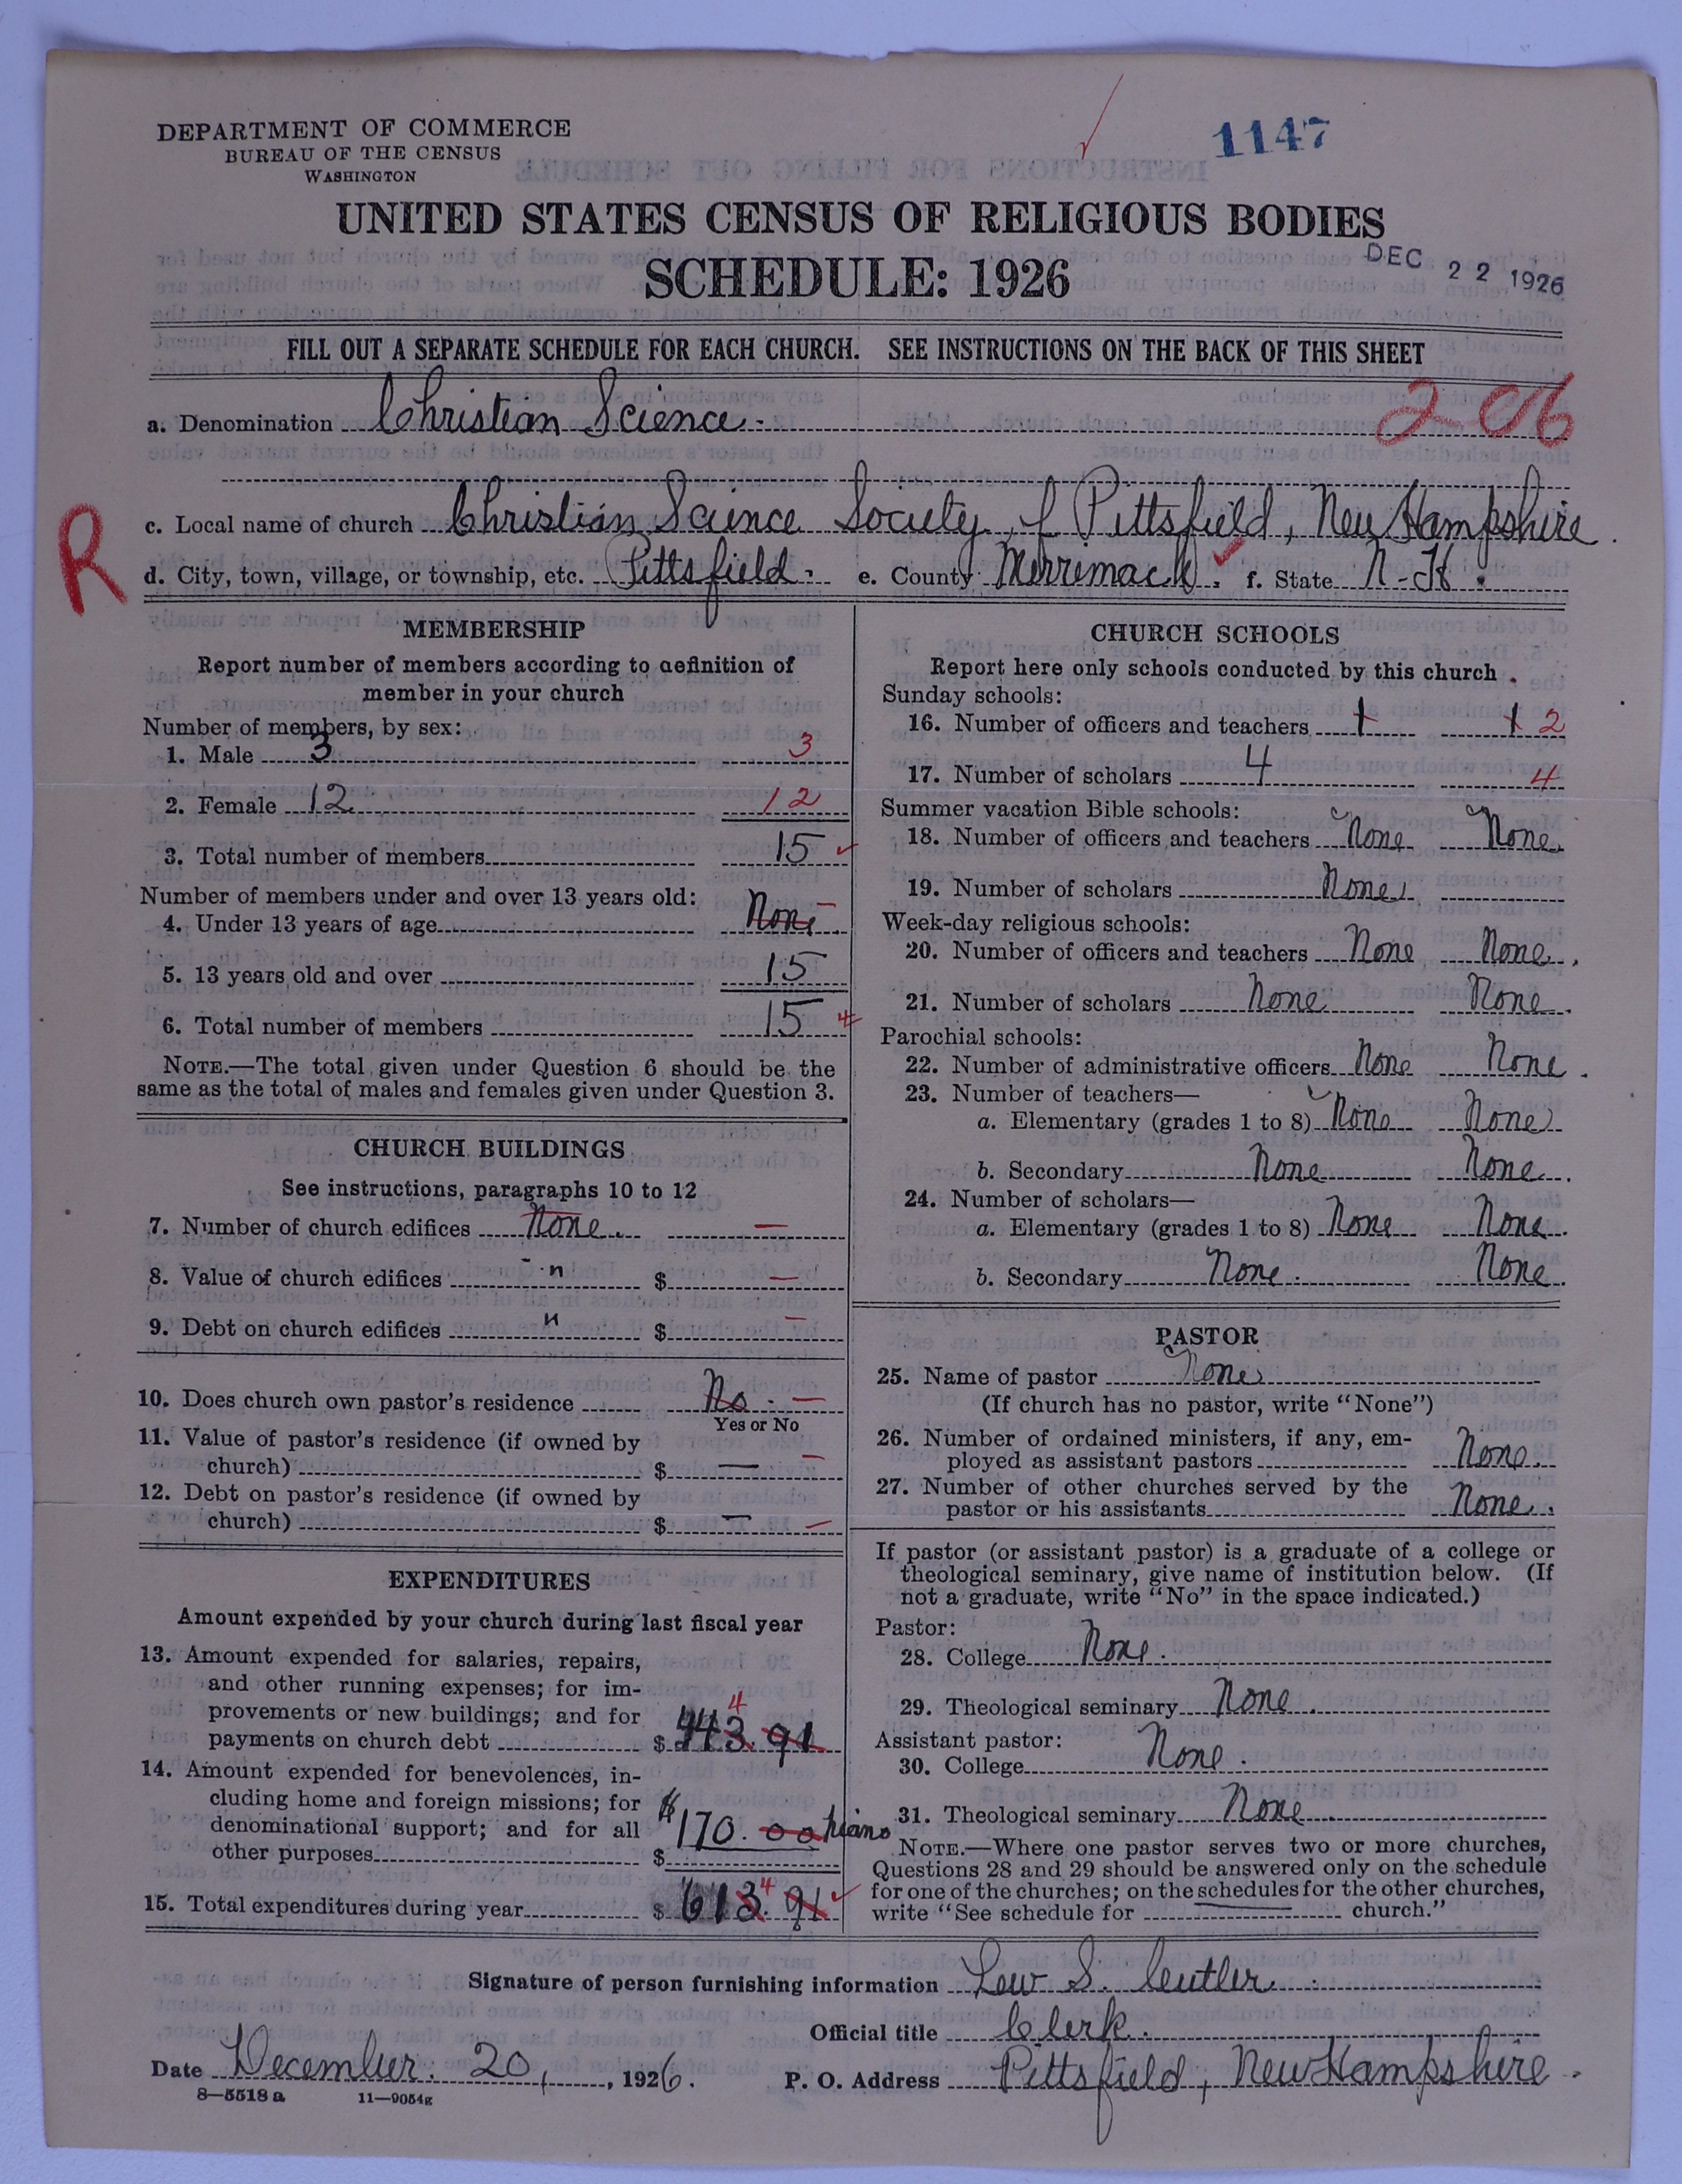 DEPARTMENT OF COMMERCE
BUREAU OF THE CENSUS
WASHINGTON
1147
UNITED STATES CENSUS OF RELIGIOUS BODIES
SCHEDULE: 1926
DEC 22 1926
FILL OUT A SEPARATE SCHEDULE FOR EACH CHURCH. SEE INSTRUCTIONS ON THE BACK OF THIS SHEET
a. Denomination Christian Science.
2-06
R
c. Local name of church Christian Science Society of Pittsfield, New Hampshire.
d. City, town, village, or township, etc. Pittsfield. e. County Merrimack. f. State N-H.
MEMBERSHIP
Report number of members according to definition of
member in your church
Number of members, by sex:
1. Male 3 3
2. Female 12 12
3. Total number of members 15
Number of members under and over 13 years old:
4. Under 13 years of age None.
5. 13 years old and over 15
6. Total number of members 15
NOTE.—The total given under Question 6 should be the
same as the total of males and females given under Question 3.
CHURCH BUILDINGS
See instructions, paragraphs 10 to 12
7. Number of church edifices None. —
8. Value of church edifices " $ —
9. Debt on church edifices " $ —
10. Does church own pastor's residence No. —
Yes or No
11. Value of pastor's residence (if owned by
church) $ — —
12. Debt on pastor's residence (if owned by
church) $ — —
EXPENDITURES
Amount expended by your church during last fiscal year
13. Amount expended for salaries, repairs,
and other running expenses; for im-
provements or new buildings; and for 4
payments on church debt $ 443.91
14. Amount expended for benevolences, in-
cluding home and foreign missions; for
denominational support; and for all $170.00 piano
other purposes $
15. Total expenditures during year $ 613.91 4
CHURCH SCHOOLS
Report here only schools conducted by this church.
Sunday schools:
16. Number of officers and teachers 1 1 2
17. Number of scholars 4 4
Summer vacation Bible schools:
18. Number of officers and teachers None None.
19. Number of scholars None.
Week-day religious schools:
20. Number of officers and teachers None None.
21. Number of scholars None None.
Parochial schools:
22. Number of administrative officers None None.
23. Number of teachers—
a. Elementary (grades 1 to 8) None None
b. Secondary None None.
24. Number of scholars—
a. Elementary (grades 1 to 8) None None.
b. Secondary None. None.
PASTOR
25. Name of pastor None
(If church has no pastor, write "None")
26. Number of ordained ministers, if any, em-
ployed as assistant pastors None.
27. Number of other churches served by the
pastor or his assistants None.
If pastor (or assistant pastor) is a graduate of a college or
theological seminary, give name of institution below. (If
not a graduate, write "No" in the space indicated.)
Pastor:
28. College None.
29. Theological seminary None.
Assistant pastor:
30. College None.
31. Theological seminary None.
NOTE.—Where one pastor serves two or more churches,
Questions 28 and 29 should be answered only on the schedule
for one of the churches; on the schedules for the other churches,
write "See schedule for church."
Signature of person furnishing information Lew S. Cutler.
Official title Clerk.
Date December. 20, , 1926. P. O. Address Pittsfield, New Hampshire.
8—5518 a 11—9054g